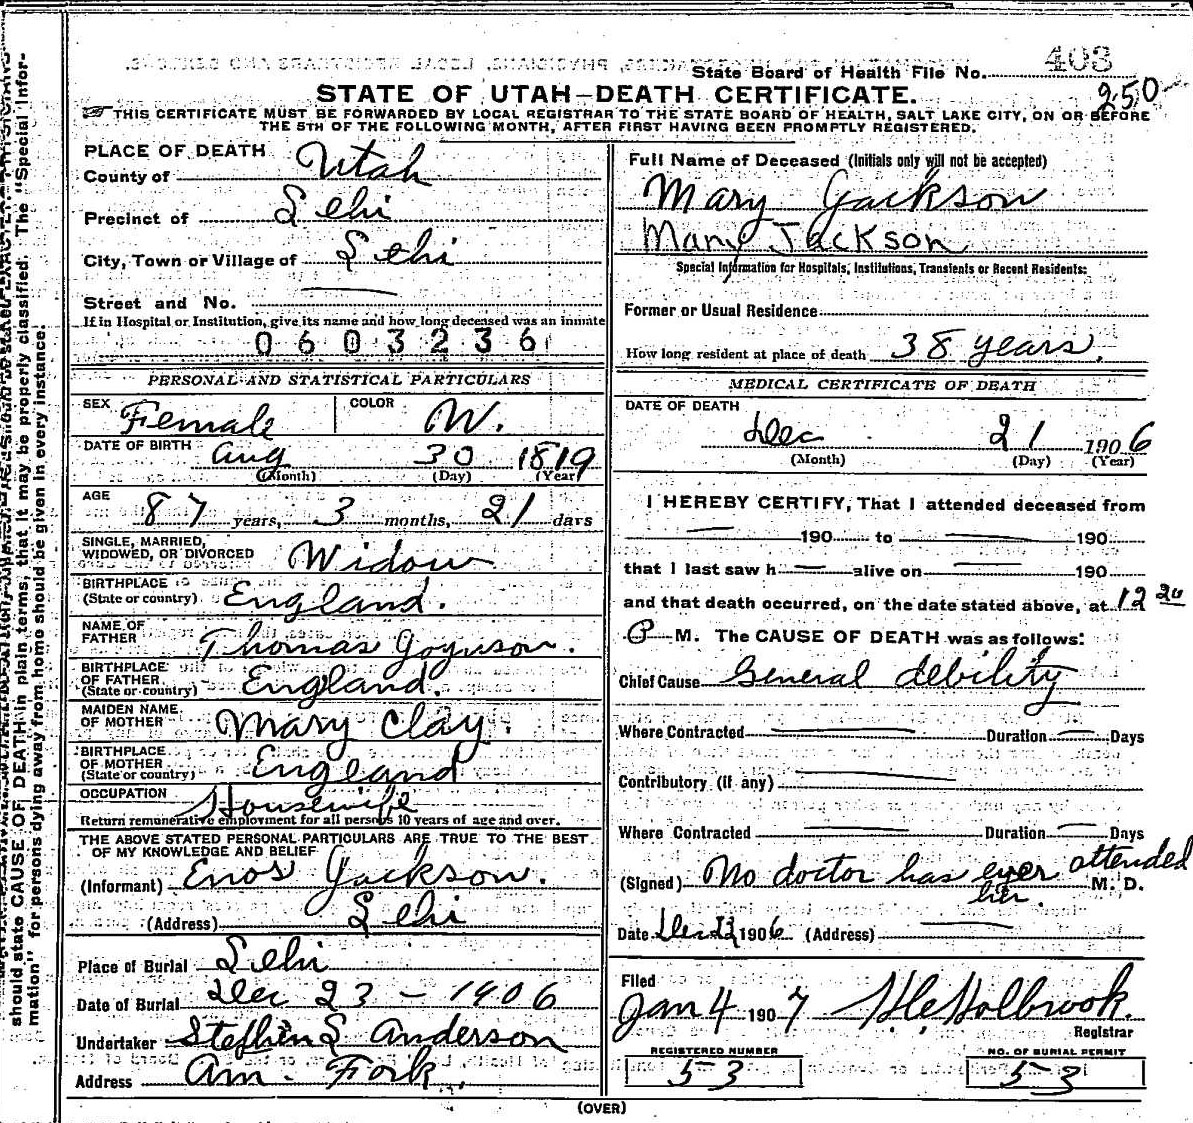 State Board of Health File No. 403
250
STATE OF UTAH—DEATH CERTIFICATE.
THIS CERTIFICATE MUST BE FORWARDED BY LOCAL REGISTRAR TO THE STATE BOARD OF HEALTH, SALT LAKE CITY, ON OR BEFORE
THE 5TH OF THE FOLLOWING MONTH, AFTER FIRST HAVING BEEN PROMPTLY REGISTERED.
PLACE OF DEATH
County of Utah
Precinct of Lehi
City, Town or Village of Lehi
Street and No. —
If in Hospital or Institution, give its name and how long deceased was an inmate
0603236
PERSONAL AND STATISTICAL PARTICULARS
SEX Female COLOR W.
DATE OF BIRTH Aug 30 1819
(Month) (Day) (Year)
AGE
87 years, 3 months, 21 days
SINGLE, MARRIED,
WIDOWED, OR DIVORCED Widow
BIRTHPLACE
(State or country) England.
NAME OF
FATHER Thomas Joynson.
BIRTHPLACE
OF FATHER
(State or country) England.
MAIDEN NAME
OF MOTHER Mary Clay.
BIRTHPLACE
OF MOTHER
(State or country) England
OCCUPATION Housewife
Return remunerative employment for all persons 10 years of age and over.
THE ABOVE STATED PERSONAL PARTICULARS ARE TRUE TO THE BEST
OF MY KNOWLEDGE AND BELIEF
(Informant) Enos Jackson.
(Address) Lehi
Place of Burial Lehi
Date of Burial Dec 23 - 1906
Undertaker Stephen L Anderson
Address Am. Fork.
Full Name of Deceased (Initials only will not be accepted)
Mary Jackson
Mary Jackson
Special Information for Hospitals, Institutions, Transients or Recent Residents:
Former or Usual Residence
How long resident at place of death 38 years.
MEDICAL CERTIFICATE OF DEATH
DATE OF DEATH
Dec 21 1906
(Month) (Day) (Year)
I HEREBY CERTIFY, That I attended deceased from
— 190 to — 190
that I last saw h — alive on — 190
and that death occurred, on the date stated above, at 12 20
P M. The CAUSE OF DEATH was as follows:
Chief Cause General debility
Where Contracted — Duration — Days
Contributory (if any) —
Where Contracted — Duration — Days
(Signed) No doctor has ever attended
her. M. D.
Date Dec 1906 (Address) —
Filed
Jan 4 1907 Holbrook.
Registrar
REGISTERED NUMBER
53
NO. OF BURIAL PERMIT
53
(OVER)
should state CAUSE OF DEATH in plain terms, that it may be properly classified. The "Special Infor-
mation" for persons dying away from home should be given in every instance.